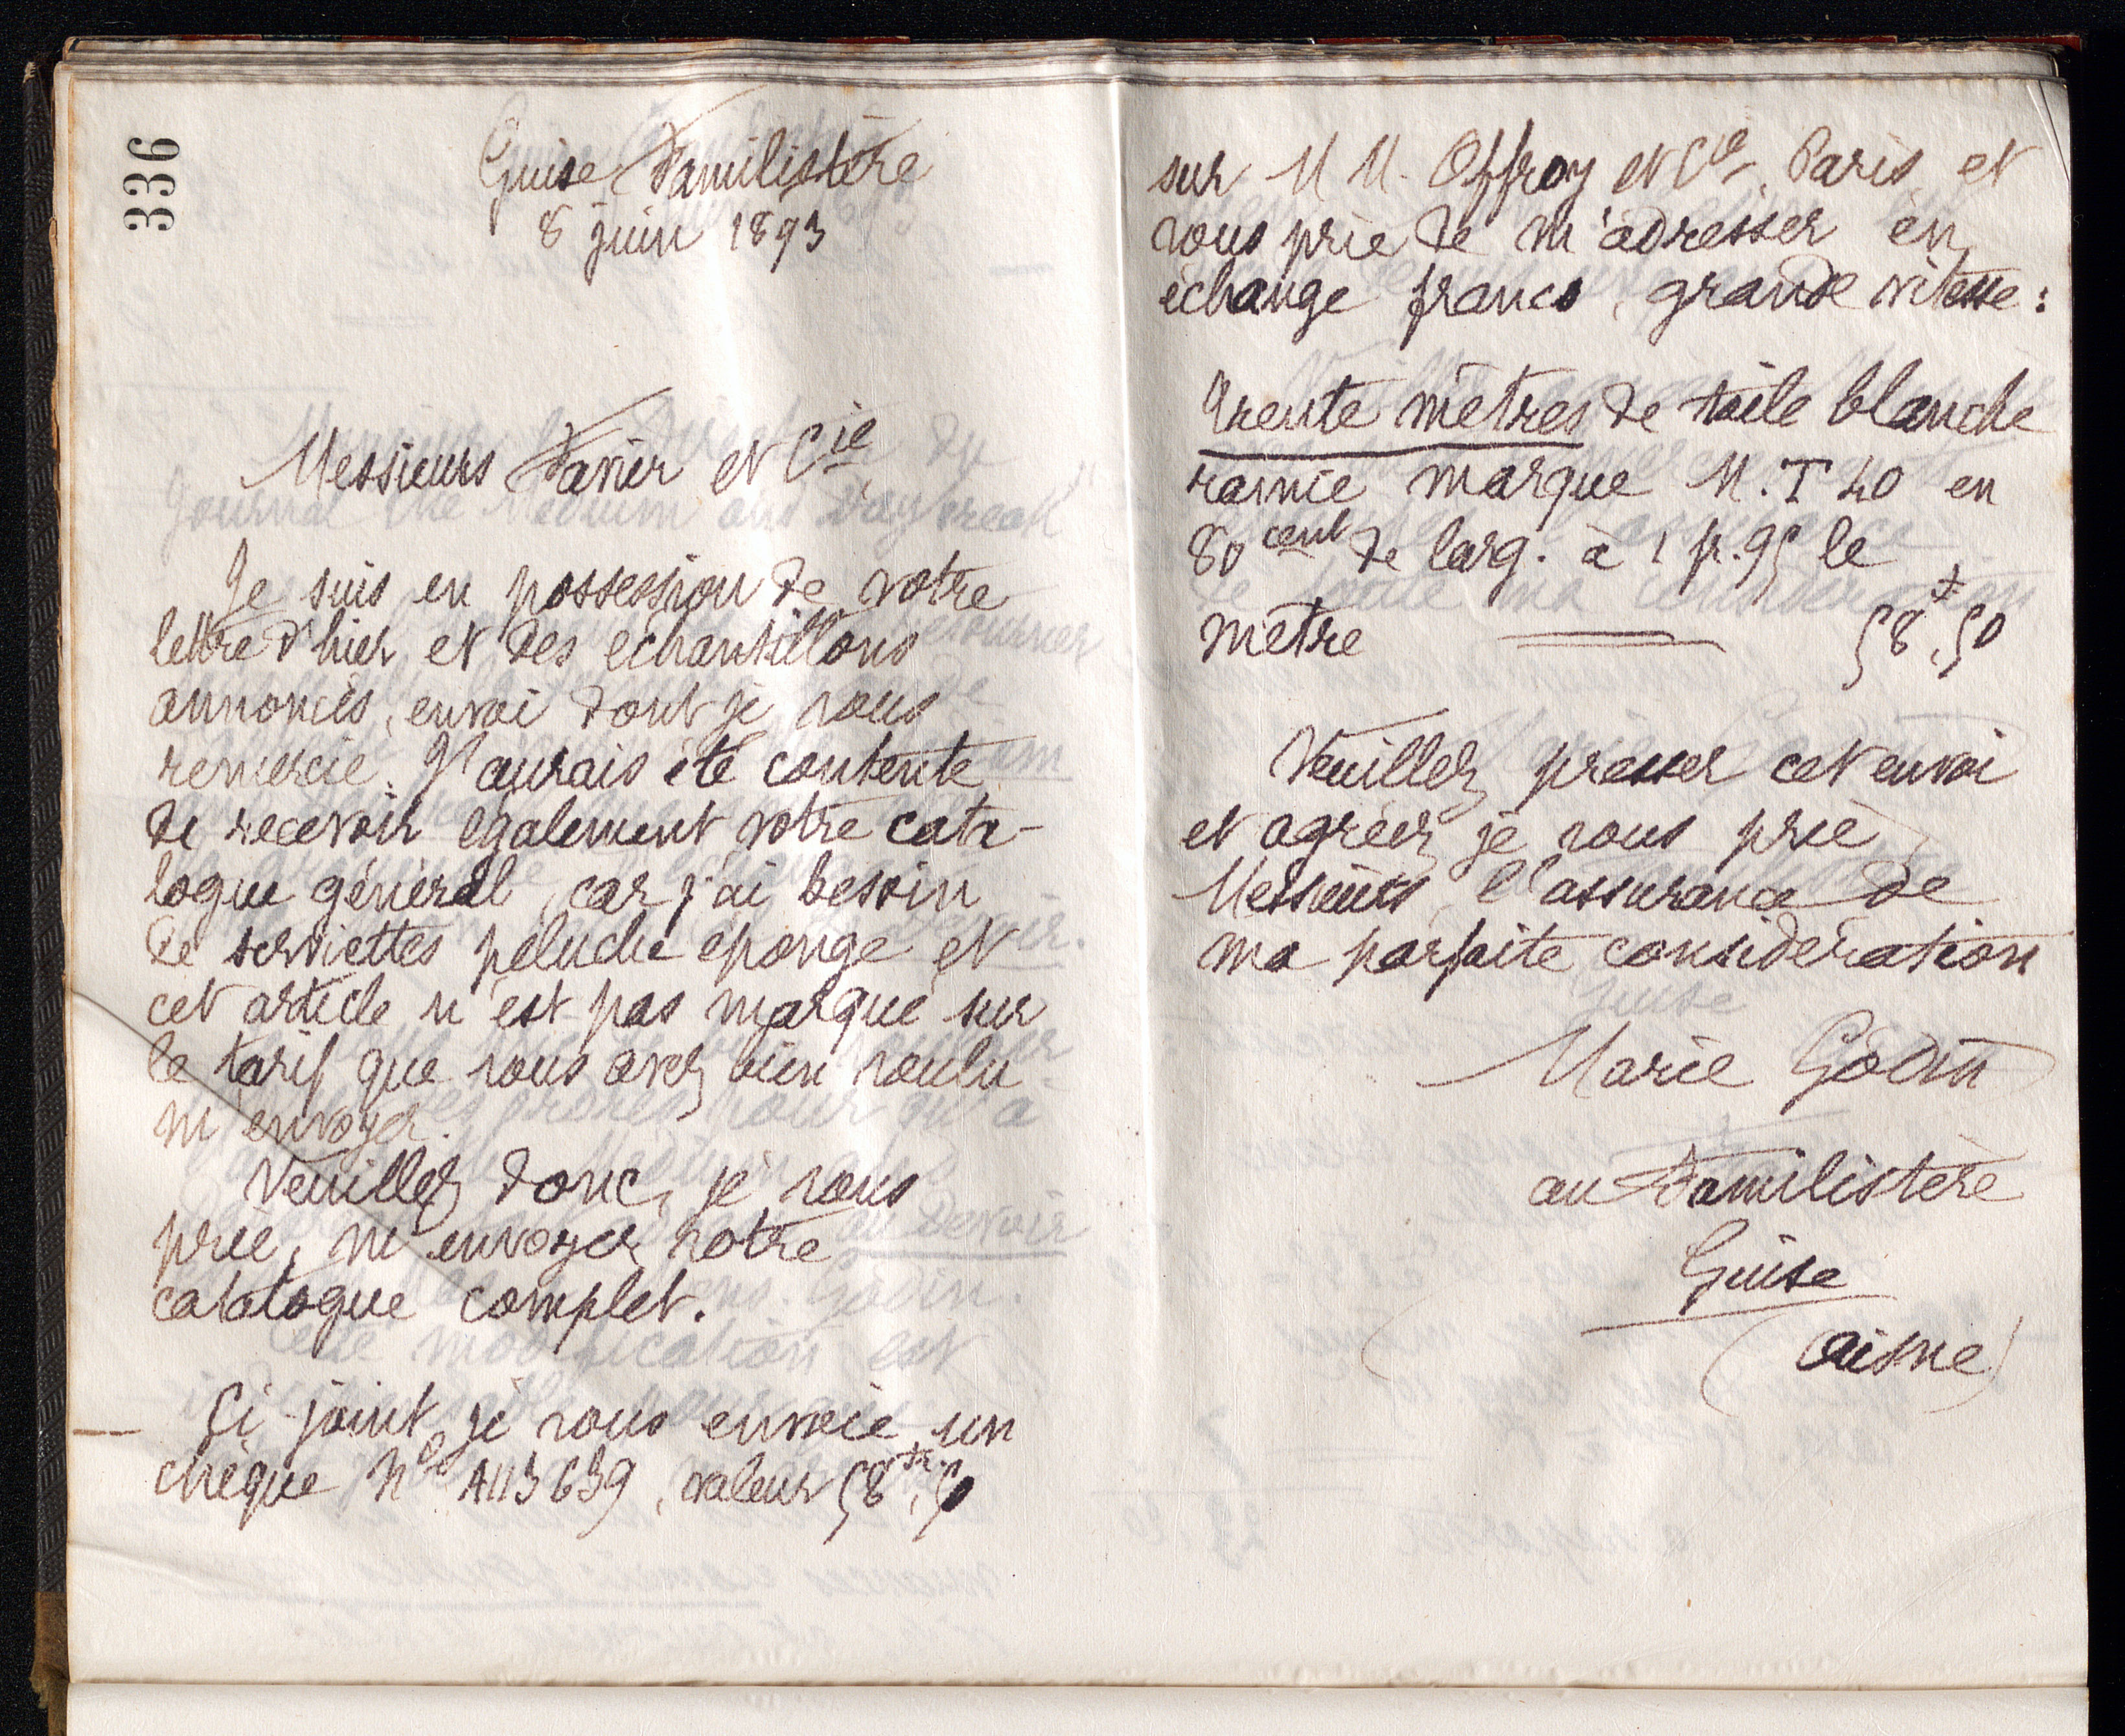 336
Guise Familistère
8 juin 1893
Messieurs Favier et Cie
Je suis en possession de votre
lettre d'hier et des echantillons
annoncés, envoi dont je vous
remercie. J'aurais été contente
de recevoir également votre cata-
logue général, car j'ai besoin
de serviettes peluche éponge et
cet article n'est pas marqué sur
le tarif que vous avez bien voulu
m'envoyer.
Veuillez donc, je vous
prie, m'envoyer votre
catalogue complet.
Ci-joint, je vous envoie un
chèque No A113639, valeur 58fr,50
sur M M. Offroy et Cie, Paris, et
vous prie de m'adresser en
échange franco, grande vitesse :
Trente mètres de toile blanche
ramie marque M.T 40 en
80 cent de larg. à 1 fr. 95 le
mètre 58f,50
Veuillez presser cet envoi
et agréer, je vous prie,
Messieurs, l'assurance de
ma parfaite considération
Marie Godin
au Familistère
Guise
(Aisne)